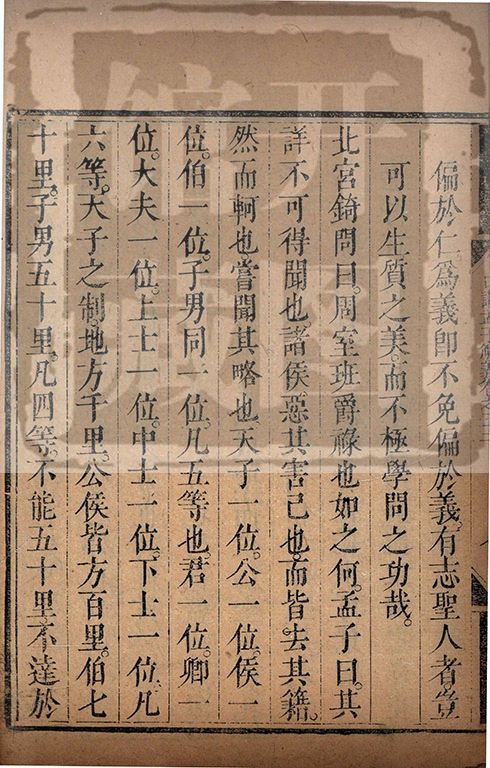 偏於仁爲義即不免偏於義有志聖人者豈
可以生質之美而不極學問之功哉。
北宮錡問曰。周室班爵祿也如之何。孟子曰。其
詳不可得聞也。諸侯惡其害己也。而皆去其籍。
然而軻也。嘗聞其略也。天子一位。公一位。侯一
位。伯一位。子男同一位。凡五等也。君一位。卿一
位。大夫一位。上士一位。中士一位。下士一位。凡
六等。天子之制。地方千里。公侯皆方百里。伯七
十里。子男五十里。凡四等。不能五十里。不達於